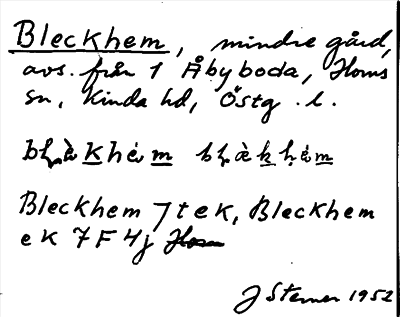 Bleckhem, mindre gård,
avs. från 1 Åbyboda, Horns
sn, Kinda hd, Östg. l.
Bleckhem 7 t e K, Bleckhem
e K 7 F 4 j Horn
J Sterner 1952